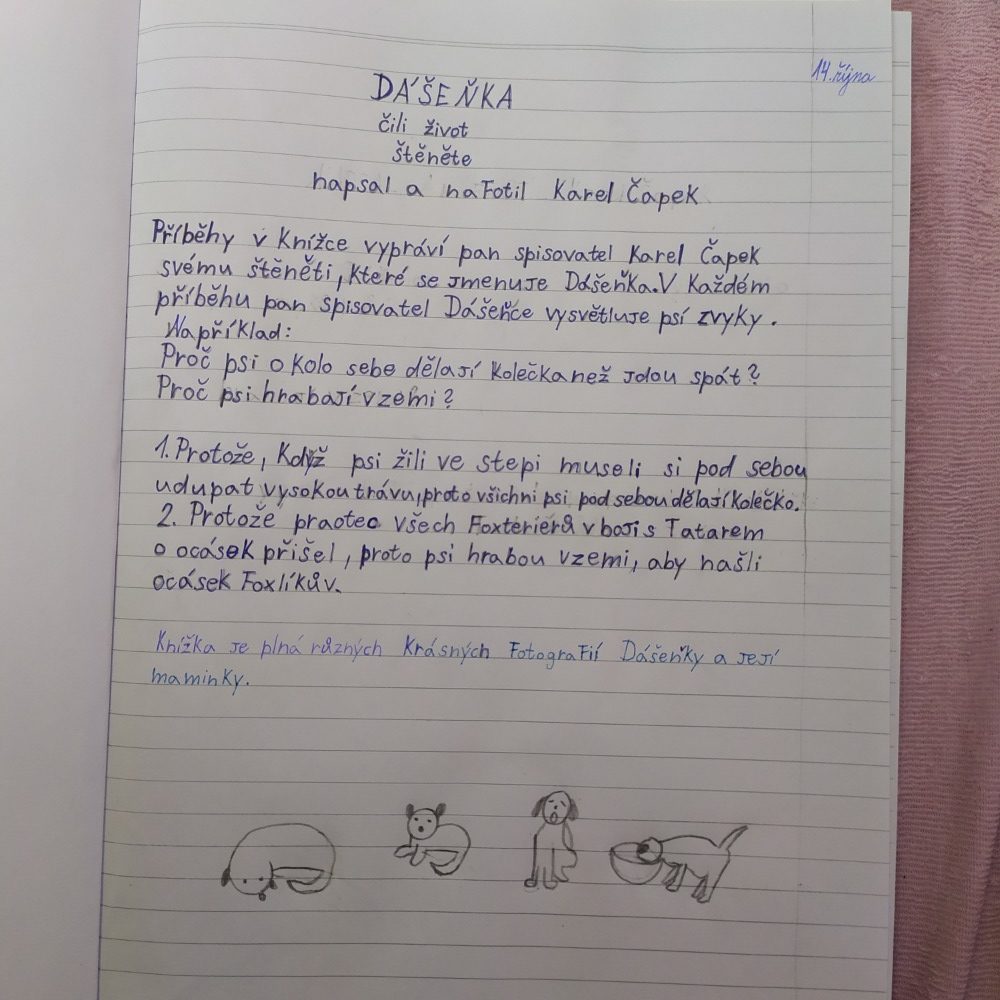 14. října
DÁŠEŇKA
čili život
štěněte
napsal a nafotil Karel Čapek
Příběhy v knížce vypráví pan spisovatel Karel Čapek
svému štěněti, které se jmenuje Dášeňka. V každém
příběhu pan spisovatel Dášeňce vysvětluje psí zvyky.
Například:
Proč psi okolo sebe dělají kolečka než jdou spát?
Proč psi hrabají v zemi?
1. Protože, když psi žili ve stepi museli si pod sebou
udupat vysokou trávu, proto všichni psi pod sebou dělají kolečko.
2. Protože praotec všech Foxterierů v boji s Tatarem
o ocásek přišel, proto psi hrabou v zemi, aby našli
ocásek Foxlíkův.
Knížka je plná různých krásných fotografií Dášeňky a její
maminky.